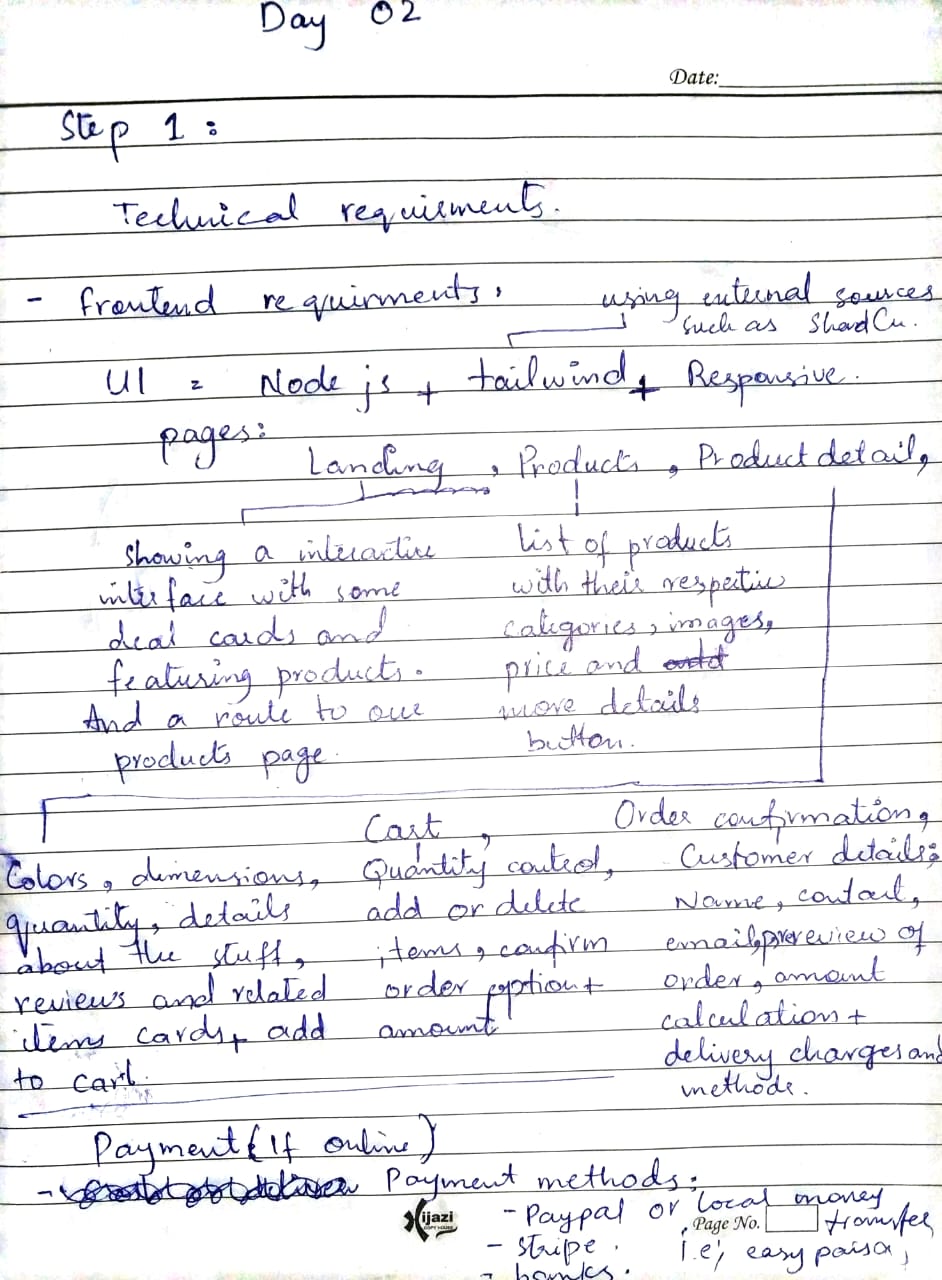 Day 02
Date:
Step 1 :
Technical requirments.
- frontend requirments,
using external sources
such as ShardCu.
UI = Node js + tailwind + Responsive.
pages:
Landing , Products , Product detail,
showing a interactive
interface with some
deal cards and
featuring products.
And a route to our
products page.
list of products
with their respective
categories, images,
price and
more details
button.
Colors, dimensions,
quantity, details
about the stuff,
reviews and related
items cards + add
to cart.
Cart ,
Quantity control,
add or delete
items, confirm
order option +
amount
Order confirmation,
Customer details:
Name, contact,
email, prereview of
order, amount
calculation +
delivery charges and
methods.
Payment (If online)
- Payment methods:
- Paypal or local money
transfer
i.e, easy paisa,
- stripe .
- banks.
ijazi
Page No.